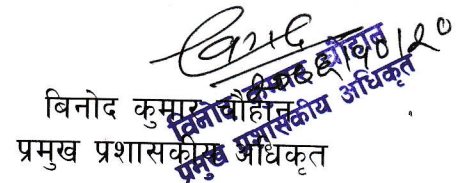 विनोद कुमार चौहान
प्रमुख प्रशासकीय अधिकृत
बिनोद कुमार चौहान
प्रमुख प्रशासकीय अधिकृत